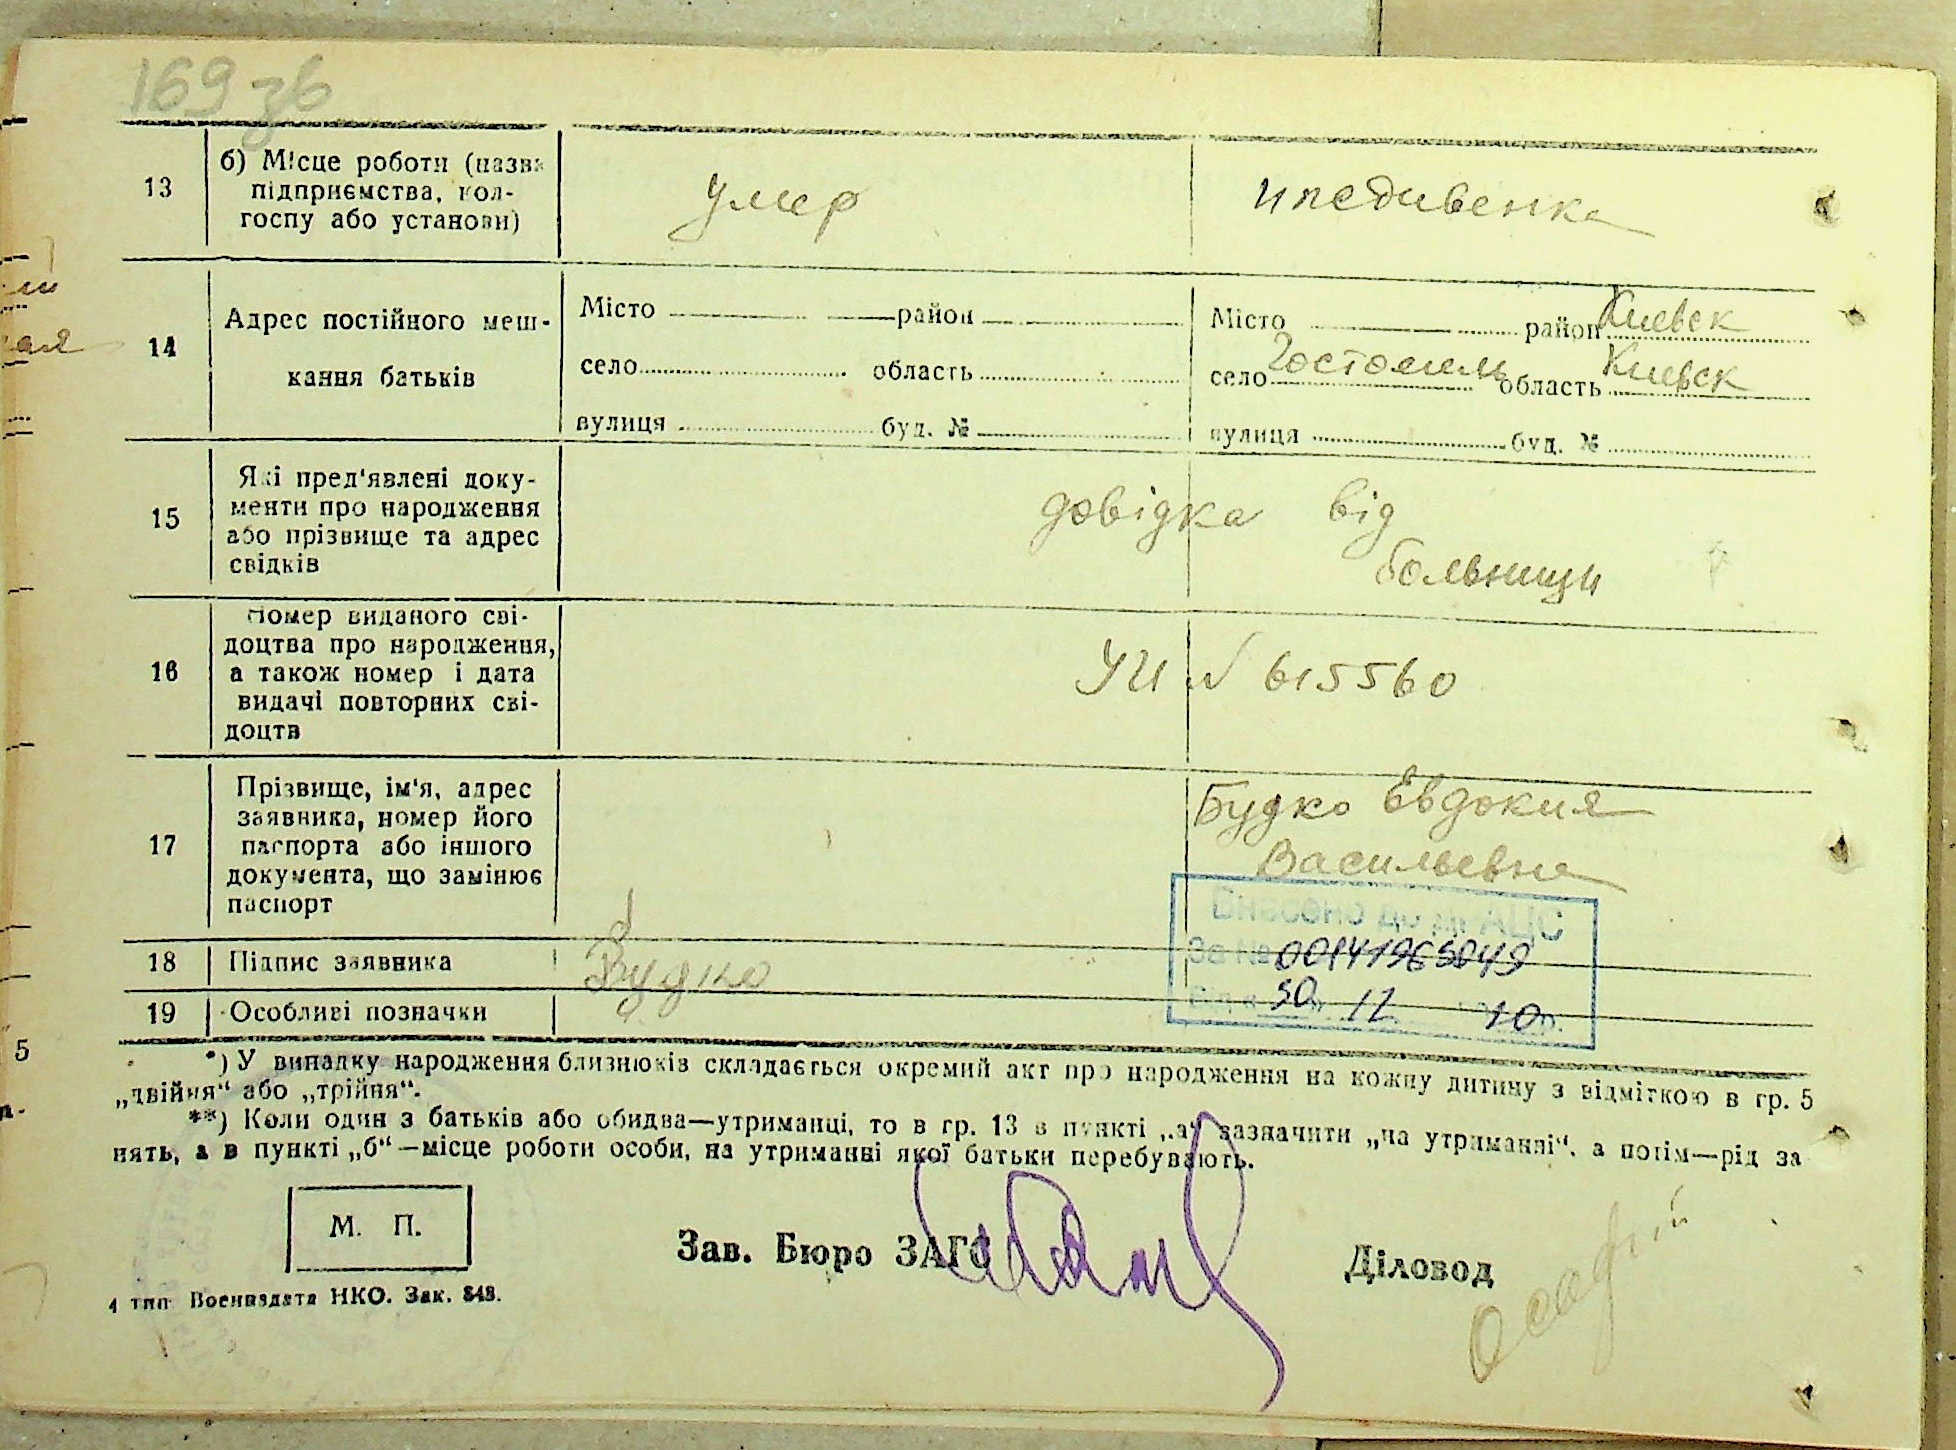 169 зв
13
б) Місце роботи (назва
підприємства, кол-
госпу або установи)
умер
ипедивенка
14
Адрес постійного меш-
кання батьків
Місто район
село область
вулиця буд. №
Місто район Киевск
село Гостомель область Киевск
вулиця буд. №
15
Які пред'явлені доку-
менти про народження
або прізвище та адрес
свідків
довідка від
больници
16
Номер виданого сві-
доцтва про народження,
а також номер і дата
видачі повторних сві-
доцтв
УИ № 615560
17
Прізвище, ім'я, адрес
заявника, номер його
паспорта або іншого
документа, що замінює
паспорт
Будко Евдокия
Васильевна
18
Підпис заявника
Будко
Внесено до ДРАЦС
За № 00141965049
від 30 12 10 р.
19
Особливі позначки
*) У випадку народження близнюків складається окремий акт про народження на кожну дитину з відміткою в гр. 5
„двійня“ або „трійня“.
**) Коли один з батьків або обидва—утриманці, то в гр. 13 в пункті „а“ зазначити „на утриманні“, а потім—рід за
нять, а в пункті „б“—місце роботи особи, на утриманні якої батьки перебувають.
М. П.
Зав. Бюро ЗАГС
Діловод
4 тип Воениздата НКО. Зак. 848.